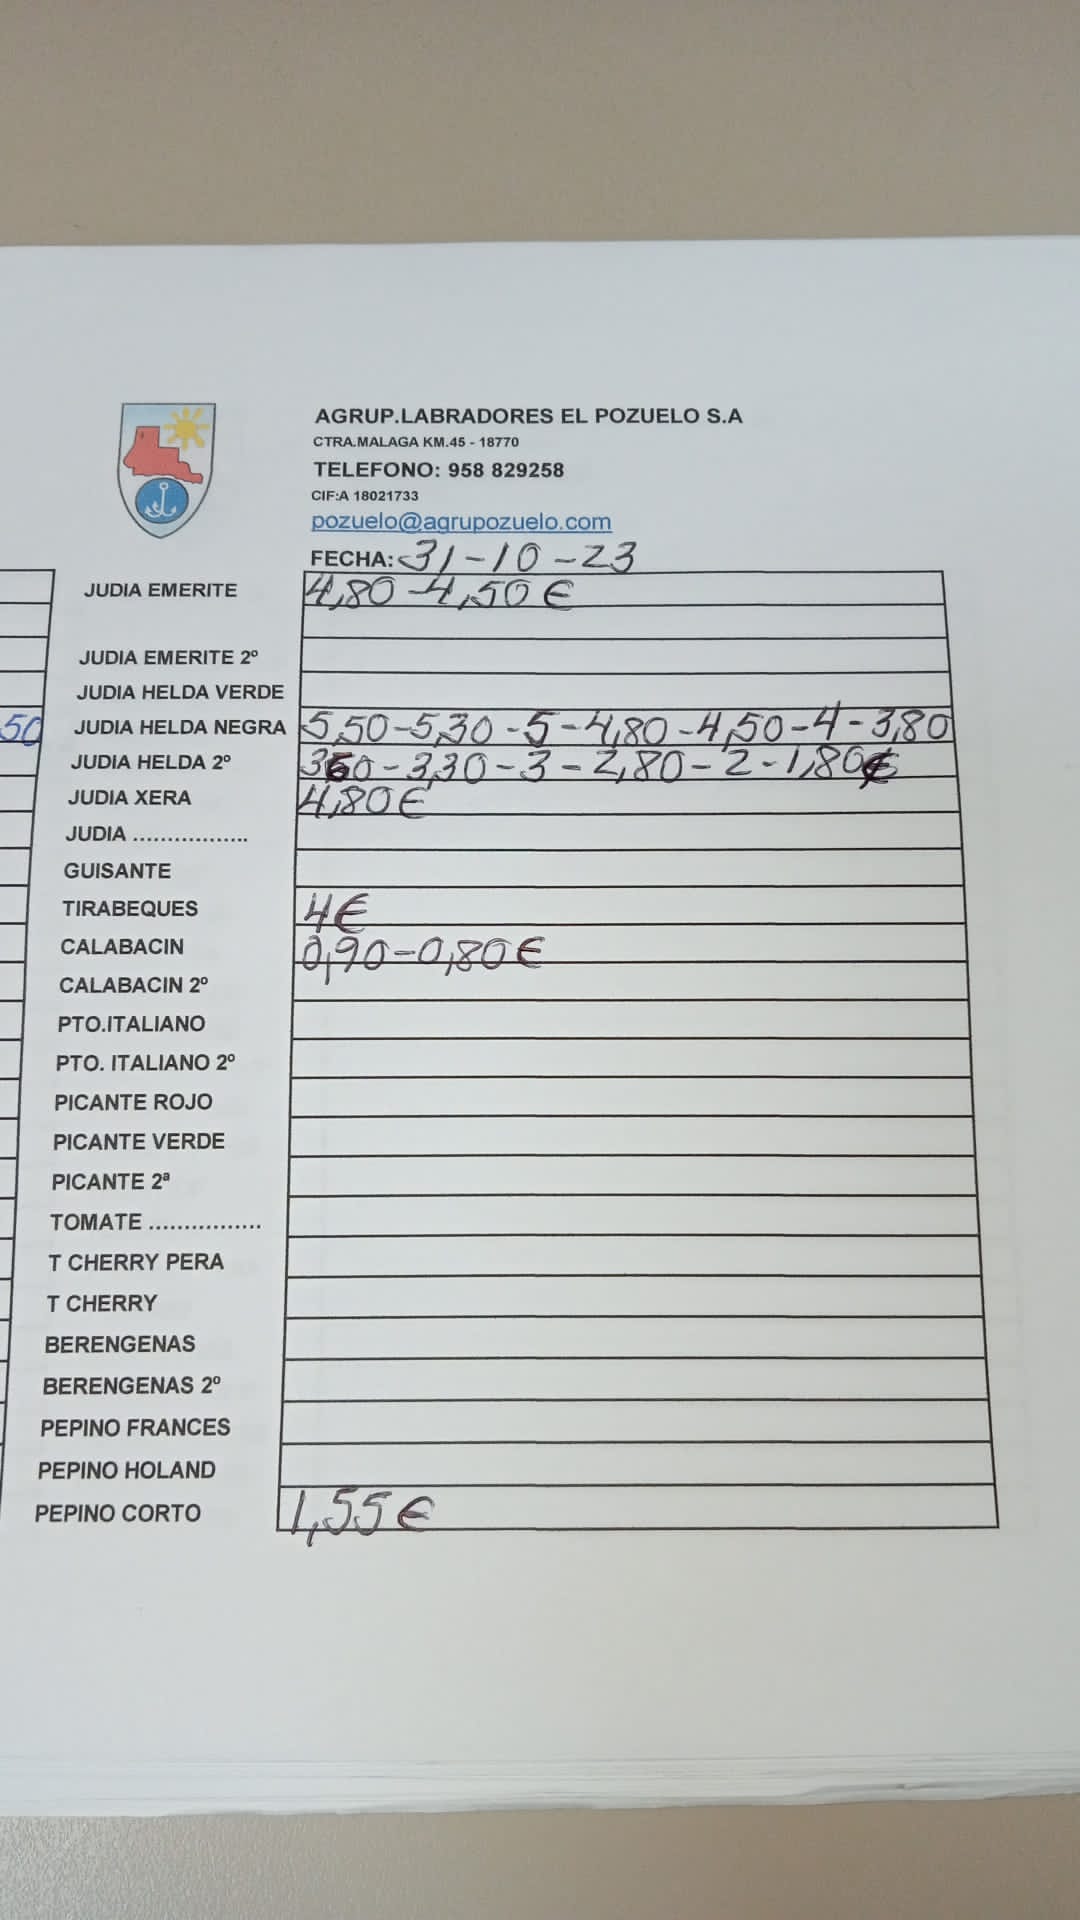 AGRUP.LABRADORES EL POZUELO S.A
CTRA.MALAGA KM.45 - 18770
TELEFONO: 958 829258
CIF:A 18021733
pozuelo@agrupozuelo.com
FECHA: 31-10-23
JUDIA EMERITE 4,80-4,50€
JUDIA EMERITE 2º
JUDIA HELDA VERDE
50 JUDIA HELDA NEGRA 5,50-5,30-5-4,80-4,50-4-3,80
JUDIA HELDA 2º 3,30-3-2,80-2-1,80€
JUDIA XERA 4,80€
JUDIA .................
GUISANTE
TIRABEQUES 4€
CALABACIN 0,90-0,80€
CALABACIN 2º
PTO.ITALIANO
PTO. ITALIANO 2º
PICANTE ROJO
PICANTE VERDE
PICANTE 2ª
TOMATE ................
T CHERRY PERA
T CHERRY
BERENGENAS
BERENGENAS 2º
PEPINO FRANCES
PEPINO HOLAND
PEPINO CORTO 1,55€